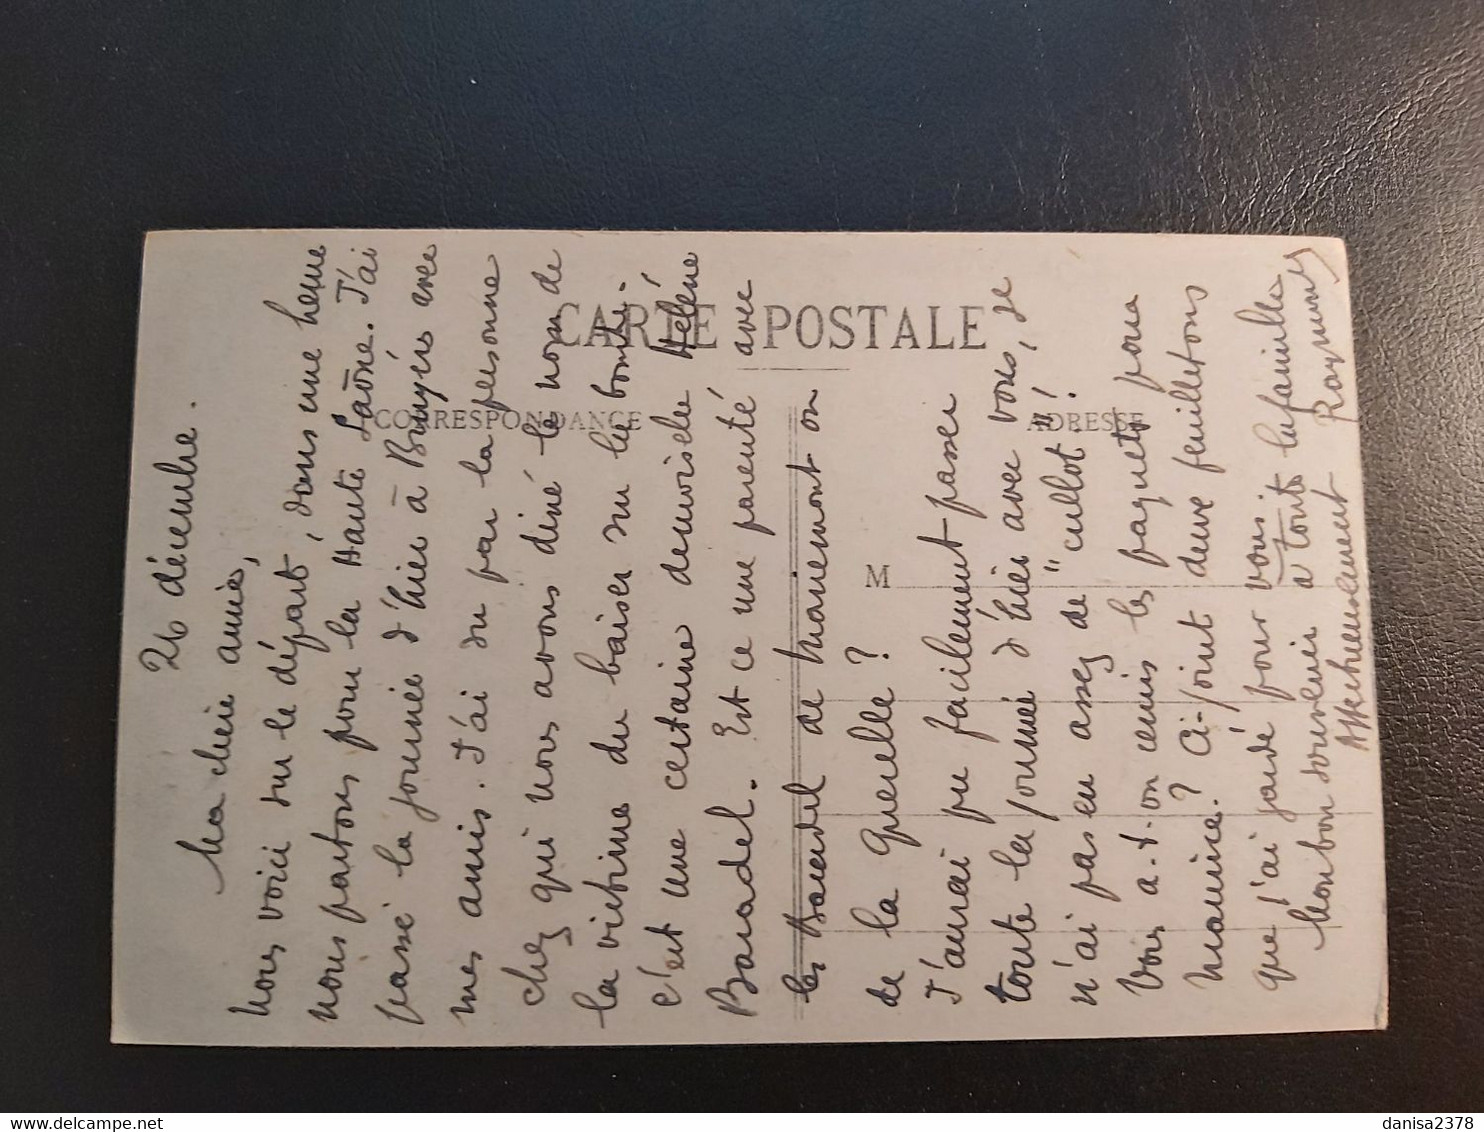 CARTE POSTALE
CORRESPONDANCE
ADRESSE
M
26 décembre.
Ma chère amie,
Nous voici sur le départ, dans une heure
nous partons pour la Haute Saône. J'ai
passé la journée d'hier à Bruyères avec
mes amis. J'ai su par la personne
chez qui nous avons diné le nom de
la victime du baiser sur lie bouche.
c'est une certaine demoiselle Hélène
Baradel. Est ce une parenté avec
les Baradel de Maremont ou
de la Querelle ?
J'aurai pu facilement passer
toute la journée d'hier avec vous, je
n'ai pas eu assez de "cullot" !
Vous a.t.on remis les paquets pour
Maurice ? Ci-joint deux feuilletons
que j'ai gardé pour vous.
Mon bon souvenir à toute la famille
Affectueusement Raymond
danisa2378